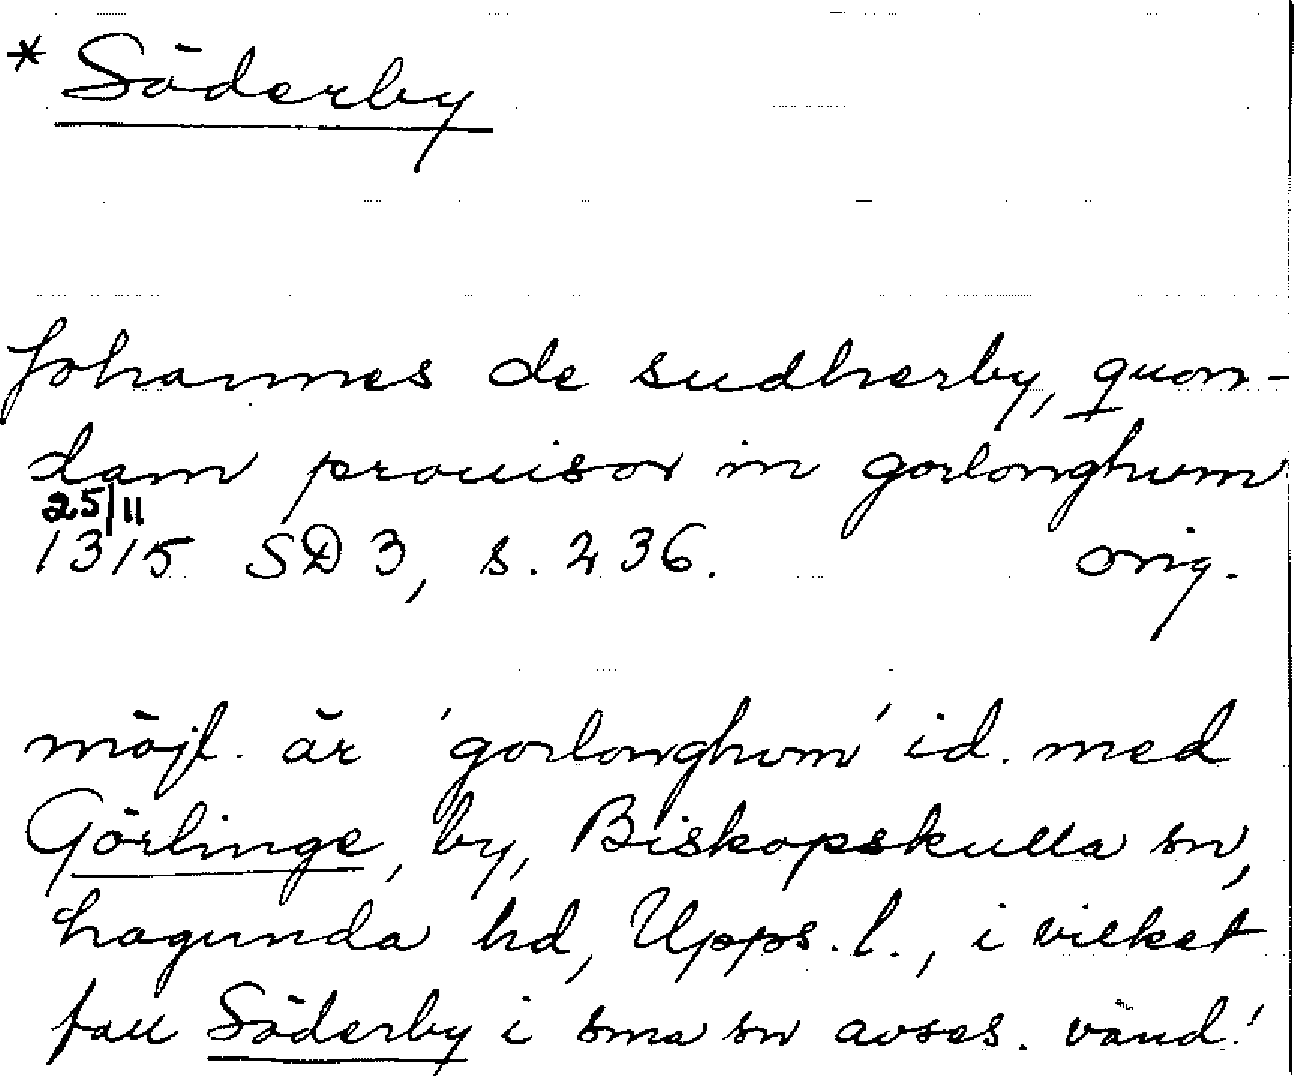 * Söderby
Johannes de sudherby, quon-
dam prouisor in gorlonghum
25/11
1315 SD 3, s. 236. orig.
möjl. är 'gorlonghum' id. med
Görlinge, by, Biskopskulla sn,
Hagunda hd, Upps. l., i vilket
fall Söderby i sma sn avses. vänd!